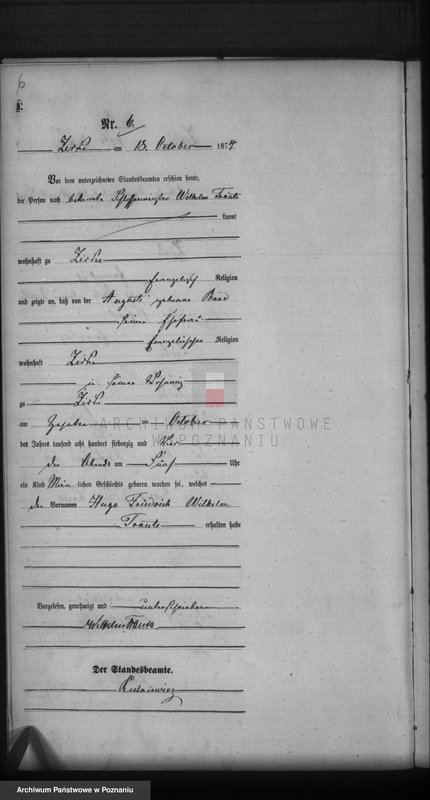 6
Nr. 6.
Zirke am 13. October 1874
Vor dem unterzeichneten Standesbeamten erschien heute,
der Person nach bekannte Schlossermeister Wilhelm Traute
kannt
wohnhaft zu Zirke
Evangelisch Religion
und zeigte an, daß von der Auguste geborene
seiner Ehefrau
Evangelischer Religion
wohnhaft Zirke
in seiner Wohnung
zu Zirke
am zehnten October
des Jahres tausend acht hundert siebenzig und Vier
des Abends um Fünf Uhr
ein Kind Männlichen Geschlechts geboren worden sei, welches
die Vornamen Hugo Friedrich Wilhelm
Traute erhalten habe
Vorgelesen, genehmigt und unterschrieben
Wilhelm Traute
Der Standesbeamte.
ARCHIWUM PAŃSTWOWE
W POZNANIU
Archiwum Państwowe w Poznaniu